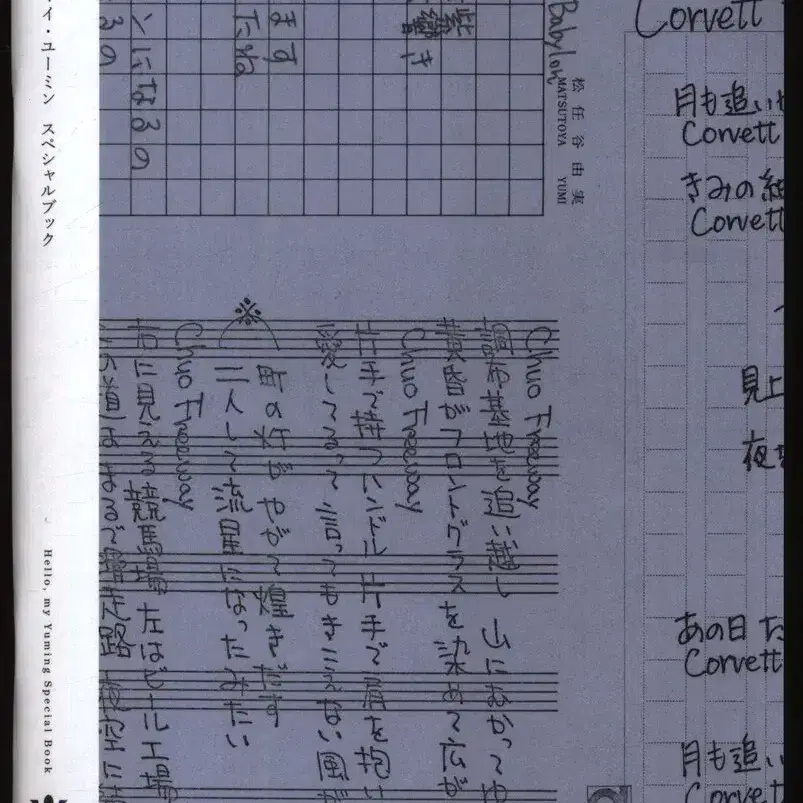 イ・ユーミン スペシャルブック
Hello, my Yuming Special Book
Babylon
松任谷由実
MATSUTOYA YUMI
紫
響き
ます
たね
ンになるの
るの
Corvett
月も追い
Corvett
きみの組
Corvett
見上
夜
あの日 た
Corvett
月も追い
Corvett
Chuo Freeway
調布基地を追い越し 山にむかって
黄昏がフロントグラスを染めて広が
Chuo Freeway
片手で持つハンドル 片手で肩を抱い
愛してるって言ってもきこえない 風が
※
町の灯がやがて煌きだす
二人して流星になったみたい
Chuo Freeway
右に見える競馬場 左はビール工場
この道は まるで滑走路 夜空に続